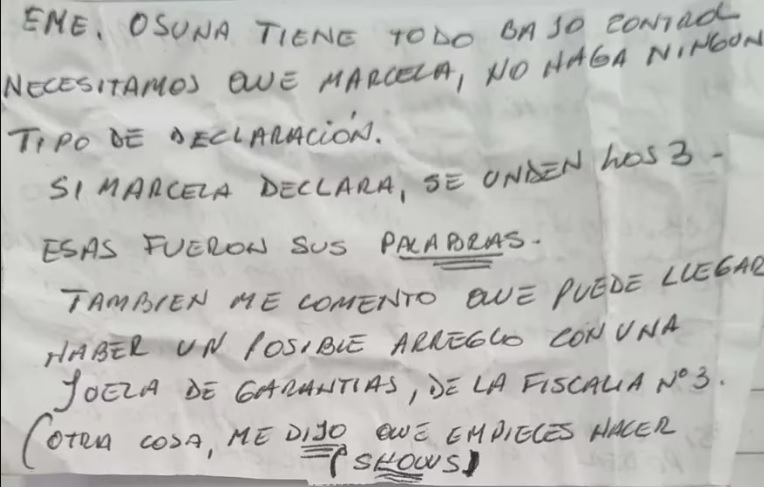 EME. OSUNA TIENE TODO BAJO CONTROL
NECESITAMOS QUE MARCELA, NO HAGA NINGUN
TIPO DE DECLARACIÓN.
SI MARCELA DECLARA, SE UNDEN LOS 3 -
ESAS FUERON SUS PALABRAS.
TAMBIEN ME COMENTO QUE PUEDE LLEGAR
HABER UN POSIBLE ARREGLO CON UNA
JUEZA DE GARANTIAS, DE LA FISCALIA Nº 3.
(OTRA COSA, ME DIJO QUE EMPIECES HACER
(SHOWS)